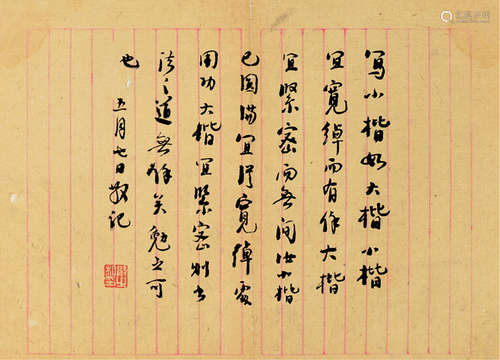 写小楷如大楷小楷
宜寛绰而有余大楷
宜紧密而无间汝小楷
已圆满宜从寛绰处
用功大楷宜紧密则书
法之道无余关勉之可
也
五月七日敬记